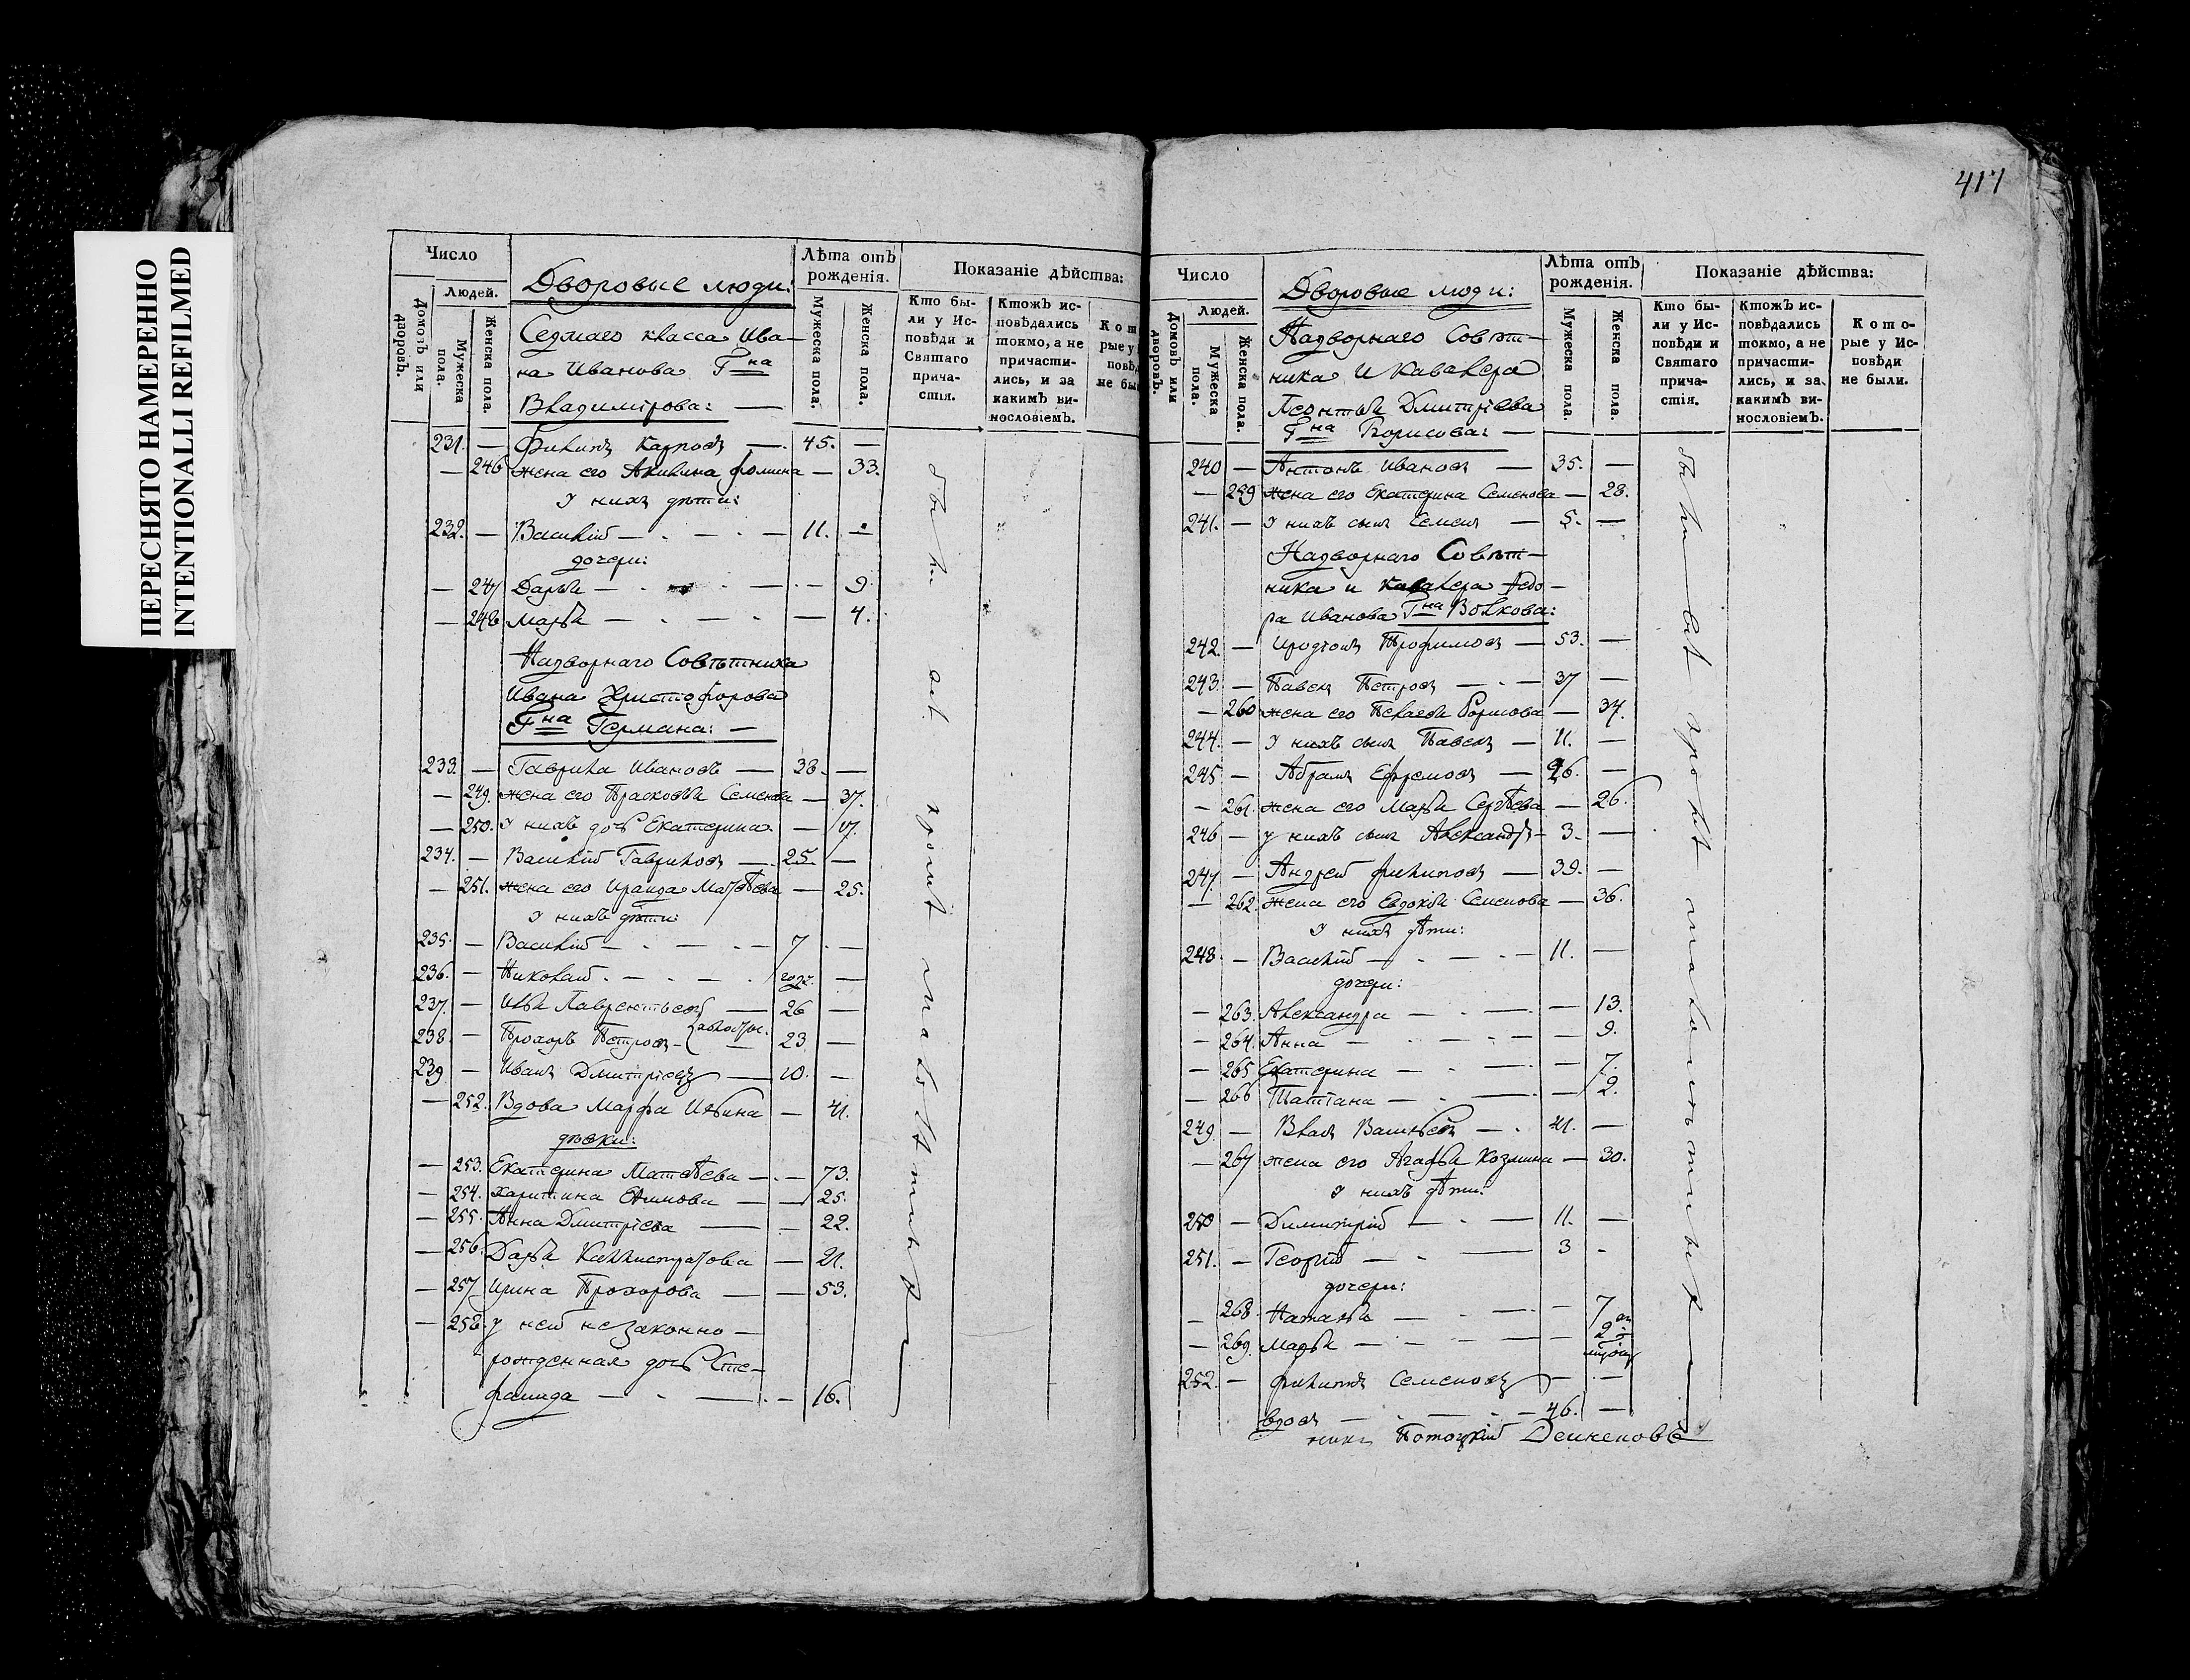 ПЕРЕСНЯТО НАМЕРЕННО
INTENTIONALLI REFILMED
Число
Людей.
Домовъ или дворовъ.
Мужеска пола.
Женска пола.
Дворовые люди:
Лѣта отъ рожденія.
Мужеска пола.
Женска пола.
Показаніе дѣйства:
Кто бы-
ли у Ис-
повѣди и
Святаго
прича-
стія.
Ктожъ ис-
повѣдались
токмо, а не
причасти-
лись, и за
какимъ ви-
нословіемъ.
Кот
рые у
повѣ
не бы
Седмаго класса Ива-
на Иванова Гна
Владимірова: —
231. — Филипъ Карповъ — 45. —
— 246 жена его Акилина Фомина — 33.
У нихъ дѣти:
232. — Василій — 11. —
дочери:
— 247 Дарья — 9.
— 248 Марья — 4.
Надворнаго Совѣтника
Ивана Христофорова
Гна Германа: —
233. — Гаврила Ивановъ — 38. —
— 249. жена его Прасковья Семенова — 37.
— 250. У нихъ дочь Екатерина — 17.
234. — Василій Гавриловъ — 25. —
— 251. жена его Ираида Матвѣева — 25.
У нихъ дѣти:
235. — Василій — 7 —
236. — Николай — —
237. — Илья Лаврентьевъ — 26 —
238. — Прохоръ Петровъ — холостые. 23 —
239 — Иванъ Дмитріевъ — 10. —
— 252. Вдова Марфа Ильина — 41.
дѣвки:
— 253. Екатерина Матвѣева — 73.
— 254. Харитина Ефимова — 25.
— 255. Анна Дмитріева — 22.
— 256. Дарья Каллистратова — 21.
— 257. Ирина Прохорова — 53.
— 258. У ней незаконно —
рожденная дочь Сте-
фанида — 16.
были
417
Число
Людей.
Домовъ или дворовъ.
Мужеска пола.
Женска пола.
Дворовые люди:
Лѣта отъ рожденія.
Мужеска пола.
Женска пола.
Показаніе дѣйства:
Кто бы-
ли у Ис-
повѣди и
Святаго
прича-
стія.
Ктожъ ис-
повѣдались
токмо, а не
причасти-
лись, и за
какимъ ви-
нословіемъ.
Кото-
рые у Ис-
повѣди
не были.
Надворнаго Совѣт-
ника и Кавалера
Леонтья Дмитріева
Гна Борисова: —
240 — Антонъ Ивановъ — 35. —
— 259 жена его Екатерина Семенова — 28.
241. — У нихъ сынъ Семенъ — 5. —
Надворнаго Совѣт-
ника и Кавалера Ѳедо-
ра Иванова Гна Волкова:
242. — Иродіонъ Трофимовъ — 53. —
243. — Павелъ Петровъ — 37 —
— 260 жена его Пелагея Борисова — 37.
244. — У нихъ сынъ Павелъ — 11. —
245 — Абрамъ Ефремовъ — 26. —
— 261. жена его Марья Сергѣева — 26.
246 — У нихъ сынъ Александръ — 3. —
247 — Андрей Филиповъ — 39. —
— 262. жена его Евдокья Семенова — 36.
У нихъ дѣти:
248 — Василій — 11. —
дочери:
— 263. Александра — 13.
— 264. Анна — 9.
— 265 Екатерина — 7.
— 266 Татіана — 2.
249. — Власъ Васильевъ — 41. —
— 267 жена его Агафья Козмина — 30.
У нихъ дѣти:
250 — Димитрій — 11. —
251. — Георгій — 3 —
дочери:
— 268. Наталья — 7
— 269. Марья — 2
252. — Филипъ Семеновъ —
вдовъ — 46. —
были